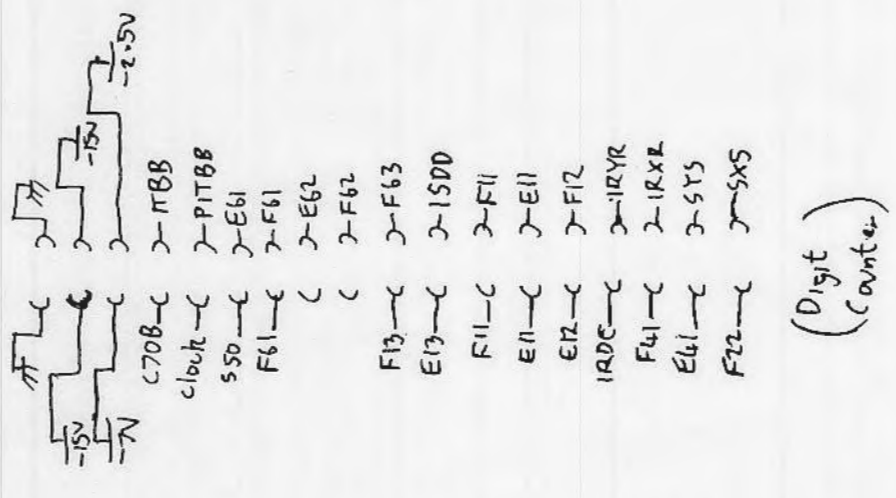 -15V
-2.5V
-15V
-7V
C70B
clock
S50
F61
F13
E13
F11
E11
E12
IRDC
F41
E41
F22
ITBB
PITBB
E61
F61
E62
F62
F63
ISDD
F11
E11
F12
IRYR
IRXR
SYS
SXS
(Digit
Counter)